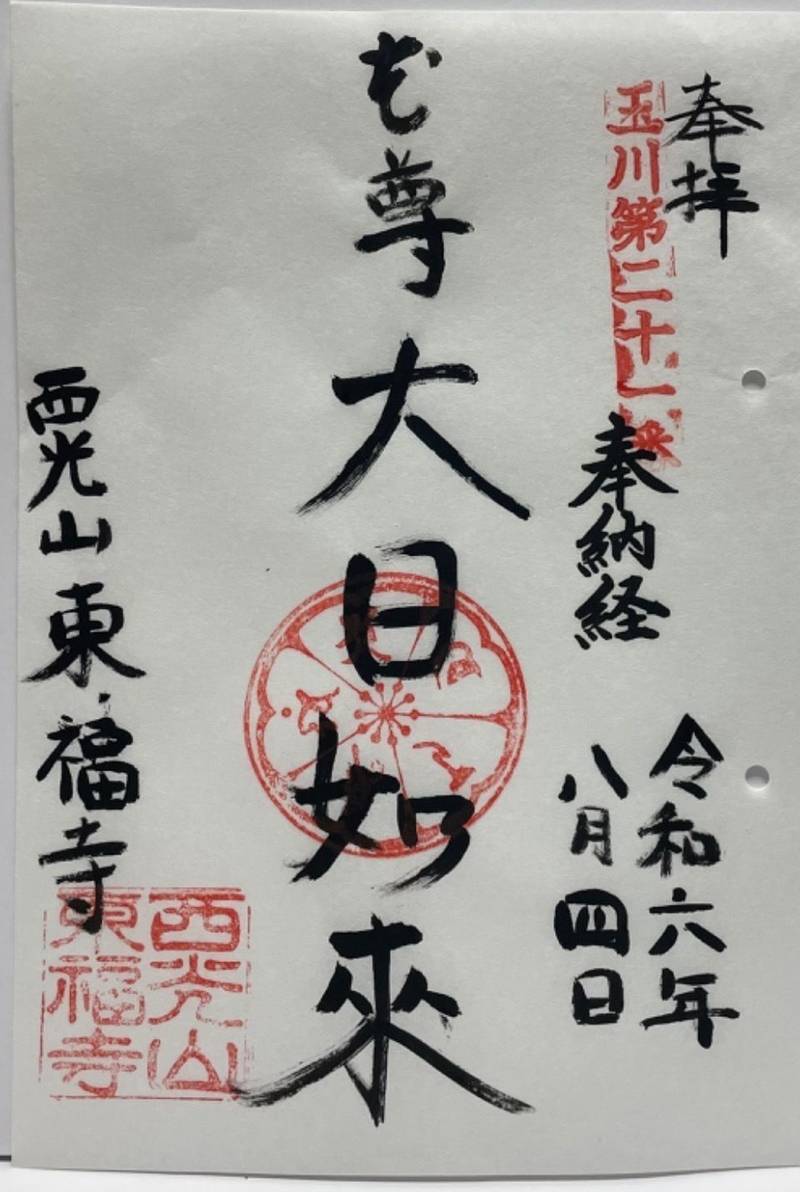 奉拝
玉川第二十一番
奉納経
令和六年
八月四日
本尊大日如來
西光山東福寺
西光山
東福寺